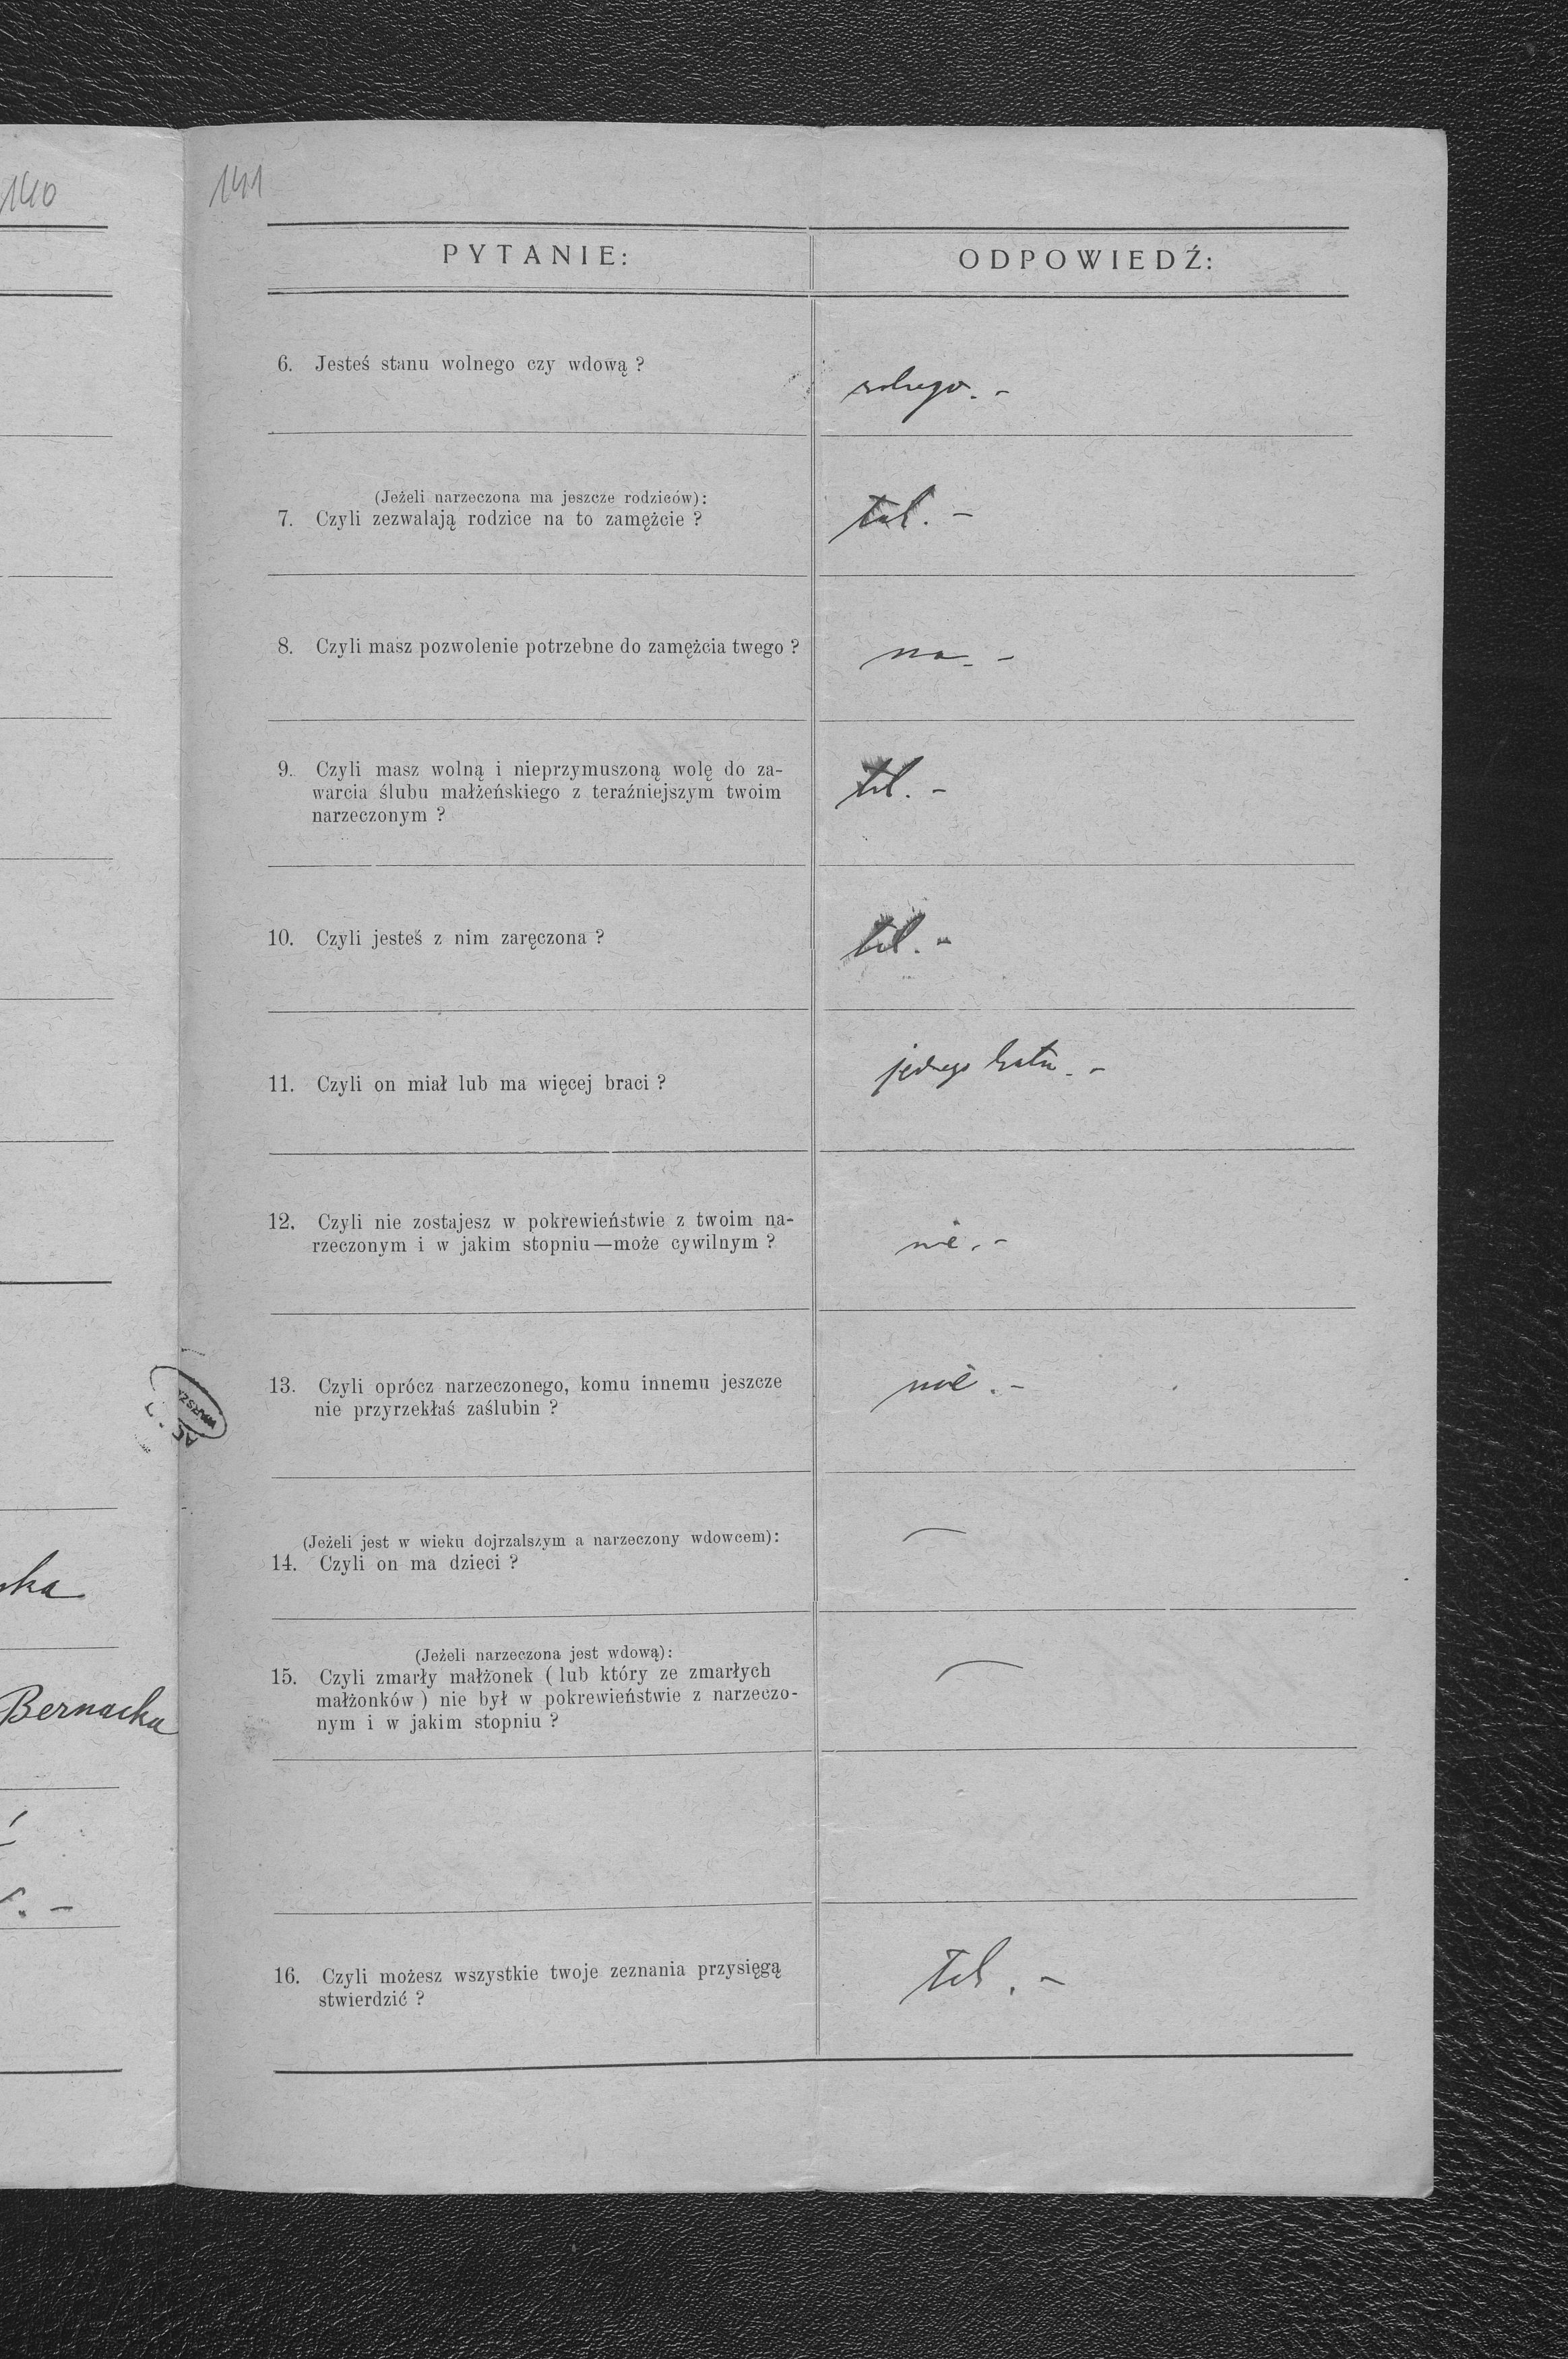 140
141
PYTANIE:
ODPOWIEDŹ:
6. Jesteś stanu wolnego czy wdową ?
wolnego. -
(Jeżeli narzeczona ma jeszcze rodziców):
7. Czyli zezwalają rodzice na to zamężcie ?
tak. -
8. Czyli masz pozwolenie potrzebne do zamężcia twego ?
ma. -
9. Czyli masz wolną i nieprzymuszoną wolę do za-
warcia ślubu małżeńskiego z teraźniejszym twoim
narzeczonym ?
tak. -
10. Czyli jesteś z nim zaręczona ?
tak. -
11. Czyli on miał lub ma więcej braci ?
jednego brata. -
12. Czyli nie zostajesz w pokrewieństwie z twoim na-
rzeczonym i w jakim stopniu—może cywilnym ?
nie. -
13. Czyli oprócz narzeczonego, komu innemu jeszcze
nie przyrzekłaś zaślubin ?
nie. -
(Jeżeli jest w wieku dojrzalszym a narzeczony wdowcem):
14. Czyli on ma dzieci ?
—
ska
(Jeżeli narzeczona jest wdową):
15. Czyli zmarły małżonek ( lub który ze zmarłych
małżonków ) nie był w pokrewieństwie z narzeczo-
nym i w jakim stopniu ?
—
Bernacka
16. Czyli możesz wszystkie twoje zeznania przysięgą
stwierdzić ?
tak. -